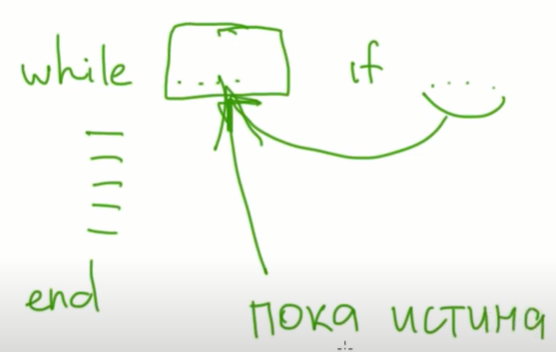 while .... if ....
end
пока истина